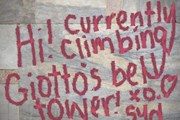 Hi! currently
climbing
Giotto's bell
tower! xo♡
syd